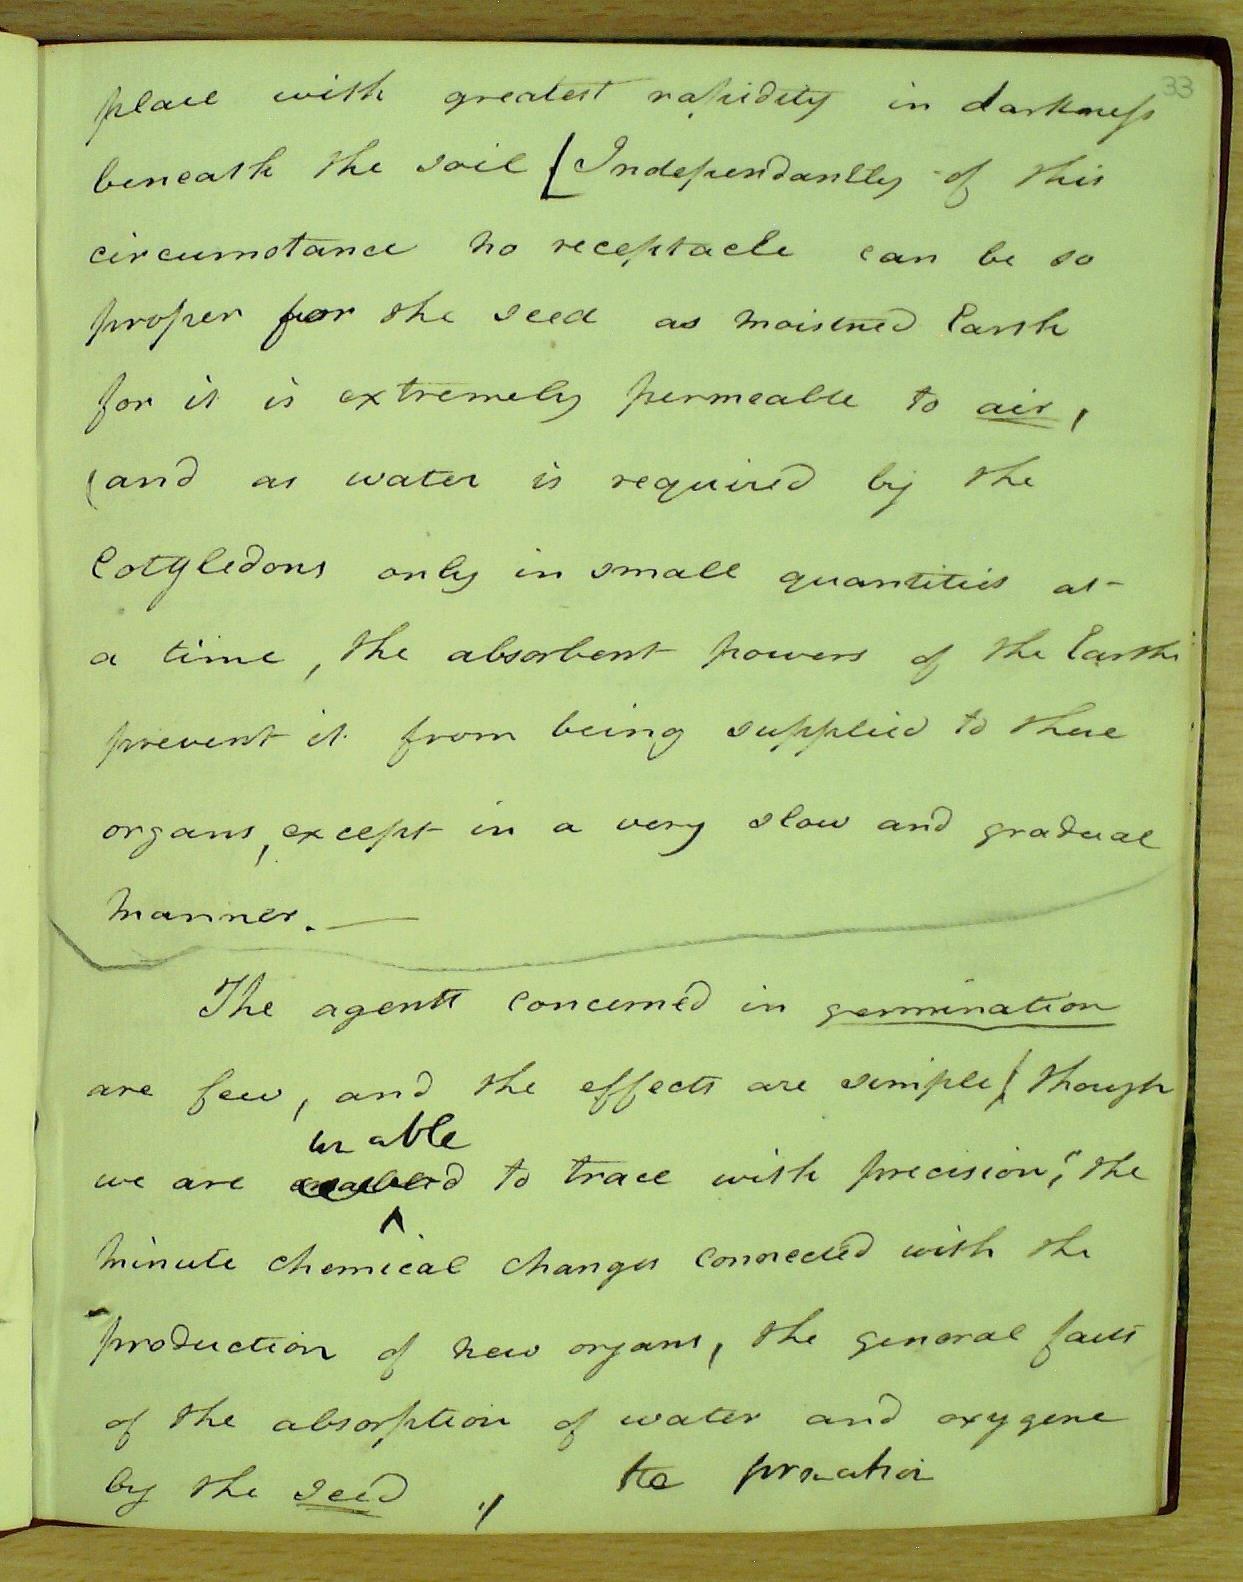 33
place with greatest rapidity in darkness
beneath the soil [Independantly of this
circumstance no receptacle can be so
proper for the seed as moistned Earth
for it is extremely permeable to air,
(and as water is required by the
Cotyledons only in small quantities at
a time, the absorbent powers of the Earth
prevent it from being supplied to these
organs, except in a very slow and gradual
manner. —
The agents concerned in germination
are few, and the effects are simple [though
unable
we are to trace with precision, the
minute chemical changes connected with the
production of new organs, the general facts
of the absorption of water and oxygene
by the seed, the